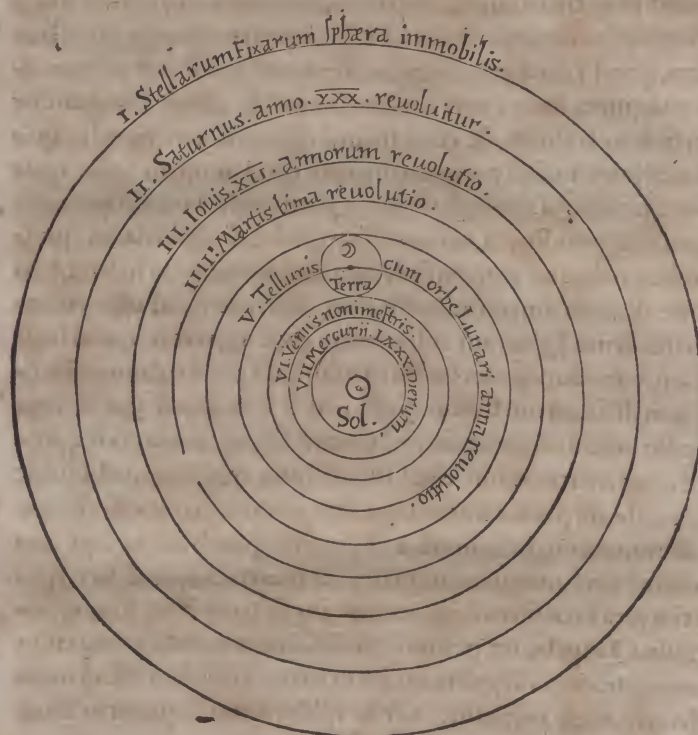 I. Stellarum Fixarum sphæra immobilis.
II. Saturnus. anno. XXX. reuoluitur.
III. Iouis. XII. annorum reuolutio.
IIII. Martis bima reuolutio.
V. Telluris cum orbe Lunari annua reuolutio.
Terra
VI. Venus nonimestris.
VII. Mercurii. LXXX. Dierum.
Sol.